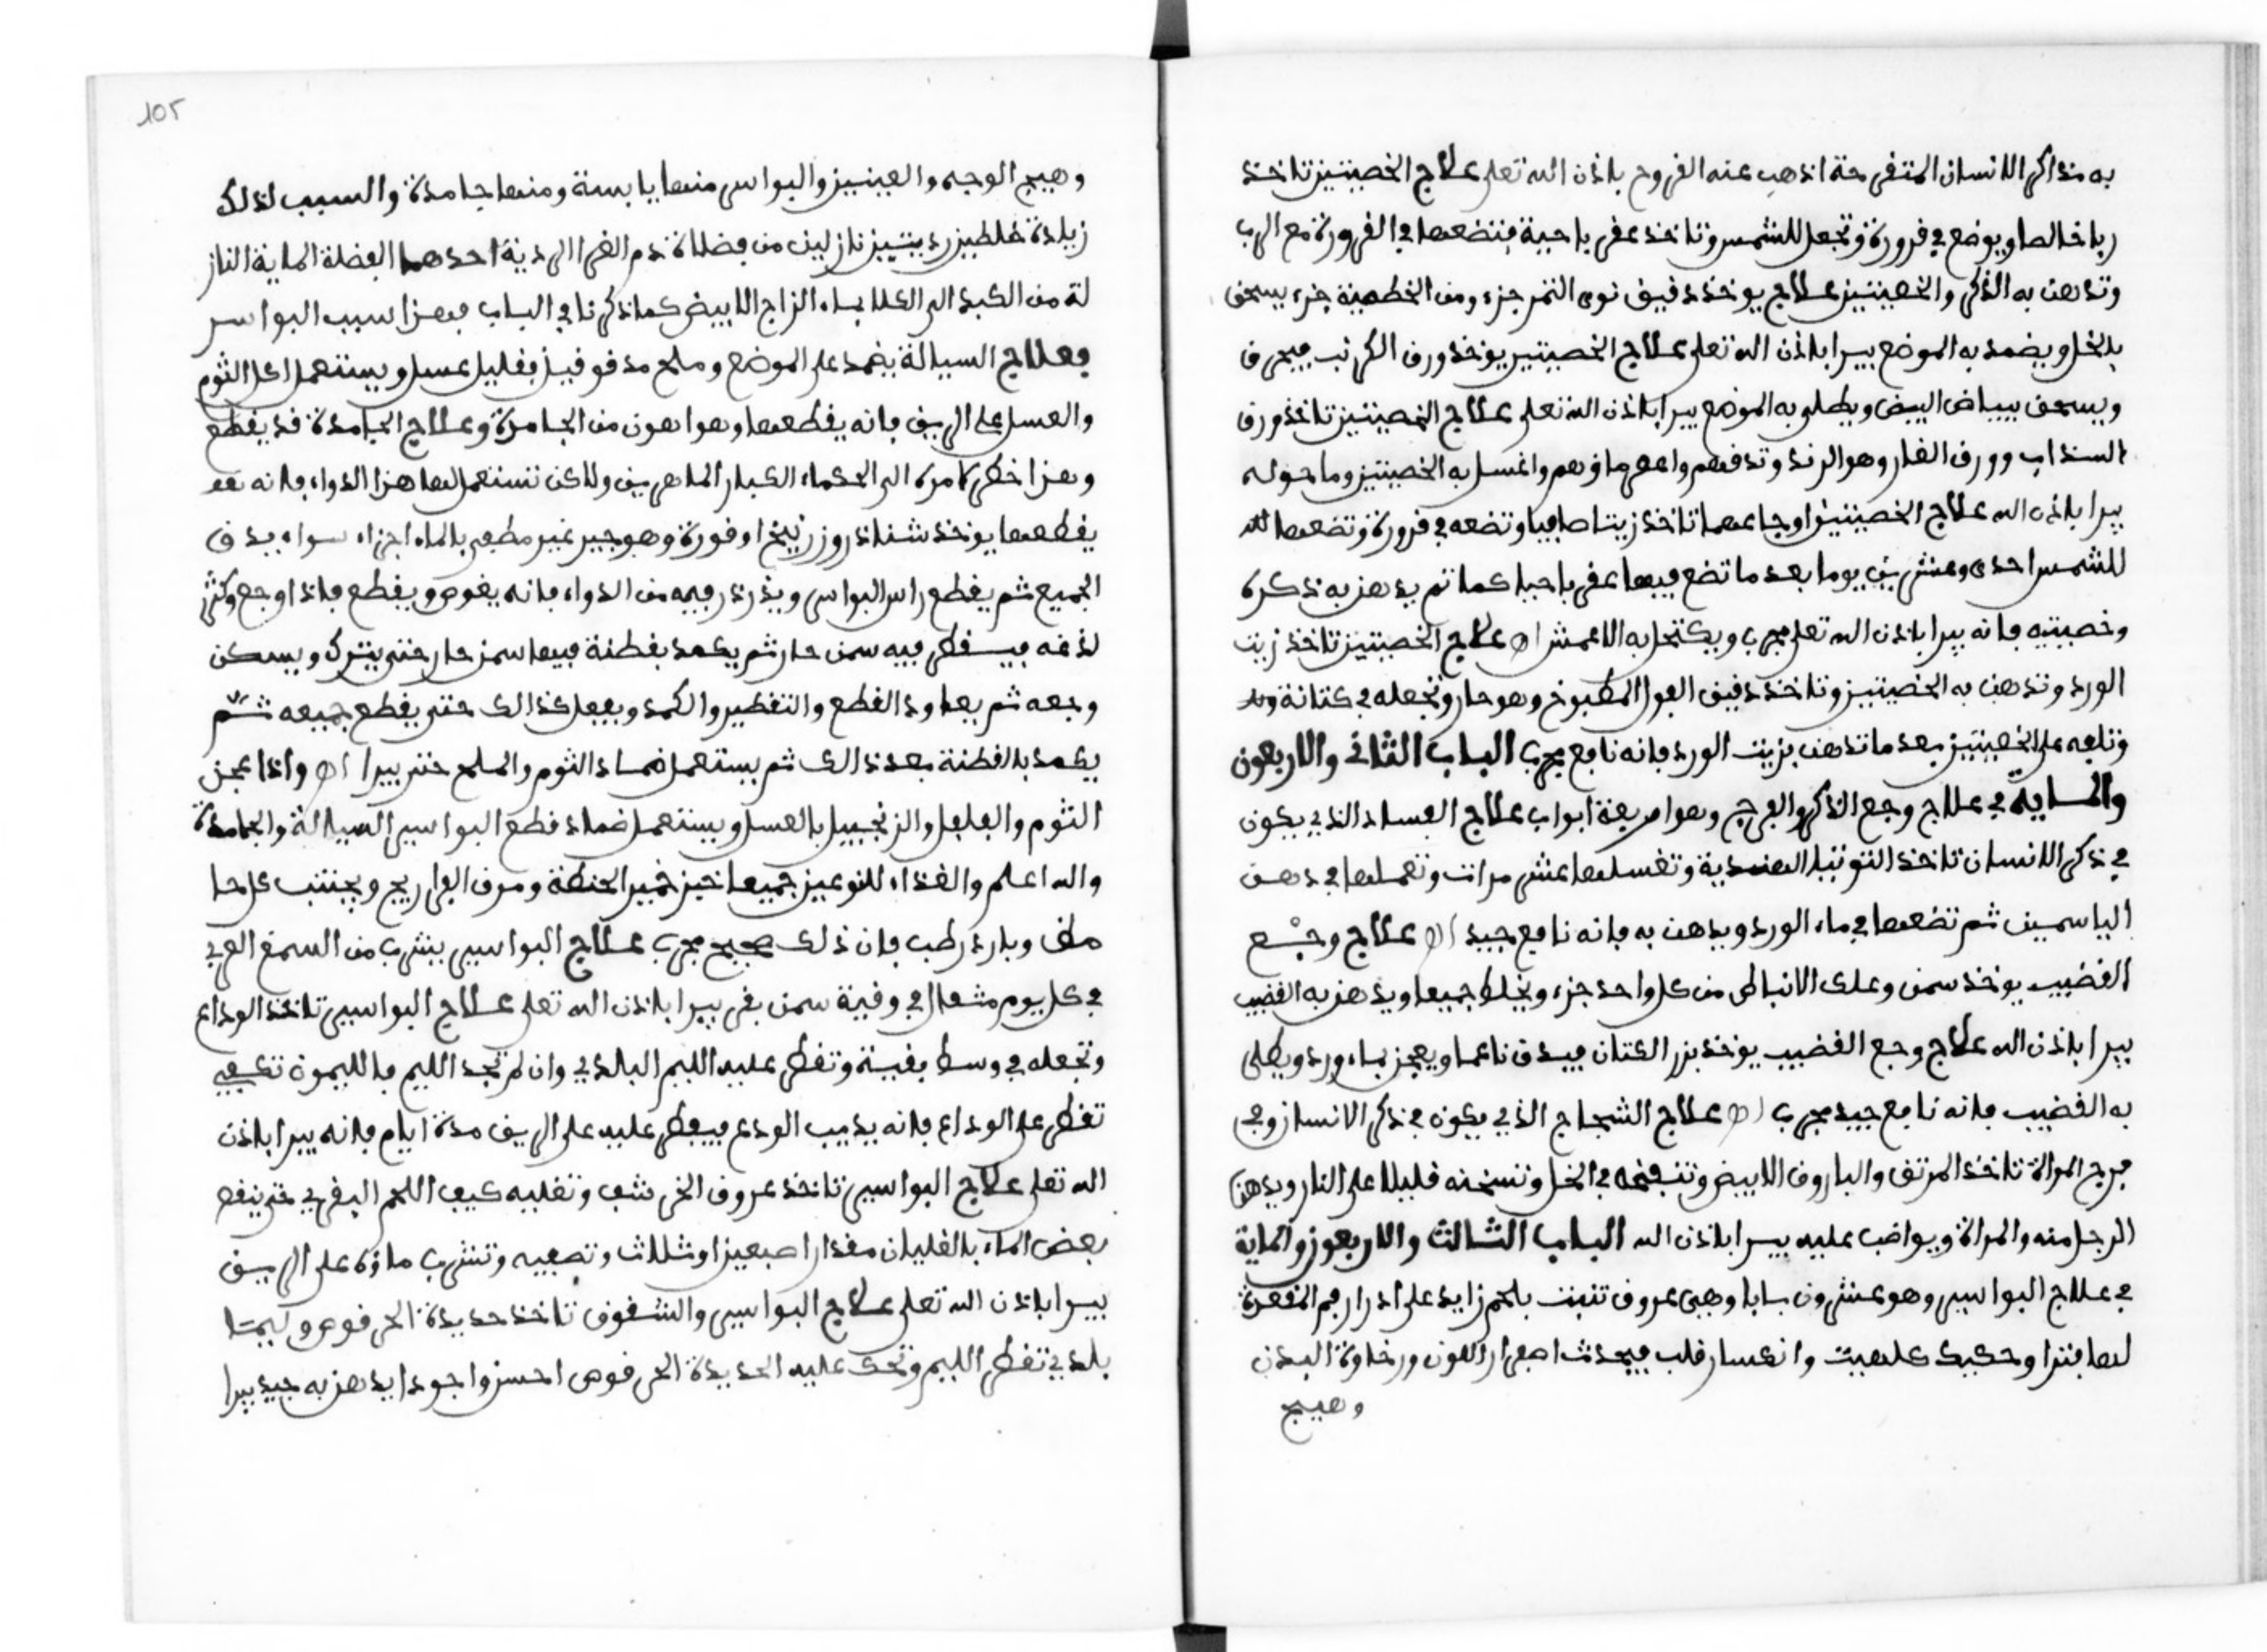 به مذاكر الانسان المتقرحة اذهب عنه القروح باذن الله تعلى علاج الخصيتين تاخذ
ربا خالصا ويوضع في قرورة وتجعل للشمس وتاخذ عقربا حية فتضعها في القرورة مع الرب
وتدهن به الذكر والخصيتين علاج يوخذ دقيق نوى التمر جزء ومن الخطمية جزء يسحق
بالخل ويضمد به الموضع يبرا باذن الله تعلى علاج الخصيتين يوخذ ورق الكرنب فيحرق
ويسحق ببياض البيض ويطلى به الموضع يبرا باذن الله تعلى علاج الخصيتين تاخذ ورق
السنداب وورق الغار وهو الرند وتدقهم واعصر ماؤهم واغسل به الخصيتين وما حوله
يبرا باذن الله علاج الخصيتين اوجاعهما تاخذ زيتا صافيا وتضعه في قرورة وتضعها
للشمس احدى وعشرين يوما بعد ما تضع فيها عقربا حيا كما تم يدهن به ذكره
وخصيتيه فانه يبرا باذن الله تعلى مجرب ويكتحل به الاعمش اه علاج الخصيتين تاخذ زيت
الورد وتدهن به الخصيتين وتاخذ دقيق الفول المطبوخ وهو حار وتجعله في كتانة
وتلفه على الخصيتين بعد ما تدهن بزيت الورد فانه نافع مجرب الباب الثاني والاربعون
والماية في علاج وجع الذكر والفرج وهو اربعة ابواب علاج الفساد الذي يكون
في ذكر الانسان تاخذ التوتيا الهندية وتغسلها عشر مرات وتعملها في دهن
الياسمين ثم تضعها في ماء الورد ويدهن به فانه نافع جيد اه علاج وجع
القضيب يوخذ سمن وعلك الانباط من كل واحد جزء ويخلط جميعا ويدهن به القضيب
يبرا باذن الله علاج وجع القضيب يوخذ بزر الكتان فيدق ناعما ويعجن بماء ورد ويطلى
به القضيب فانه نافع جيد مجرب اه علاج الشجاج الذي يكون في ذكر الانسان وفي
فرج المراة تاخذ المرتق والباروق الابيض وتنقعه في الخل وتسخنه قليلا على النار ويدهن
الرجل منه والمراة ويواضب عليه يبرا باذن الله الباب الثالث والاربعون والماية
في علاج البواسير وهو عشرون بابا وهي عروق تنبت بلحم زايد على ادرار فم المقعدة
لها فترا وحكيك كلهيت وانكسار قلب فيحدث اصفرار اللون ورخاوة البدن
وهيج
105
وهيج الوجه والعينين والبواسر منها يابسة ومنها جامدة والسبب لذلك
زيادة خلطين رديئين نازلين من فضلاة دم الغر الردية احدهما الفضلة الماية الناز
لة من الكبد الى الكلا بماء الزاج الابيض كما ذكرنا في الباب فهذا سبب البواسر
فعلاج السيالة يضمد على الموضع وملح مدقوقين بقليل عسل ويستعمل اكل الثوم
والعسل على الريق فانه يقطعها وهو اهون من الجامدة وعلاج الجامدة قد يقطع
وهذا خطر لامره الى الحكماء الكبار الماهرين ولاكن تستعمل لها هذا الدواء فانه
يقطعها يوخذ شناذر وزرنيخ اوقورة وهو جير غير مطفي بالماء اجزاء سواء يدق
الجميع ثم يقطع راس البواسر ويذرذر فيه من الدواء فانه يغوص ويقطع فاذا اوجع وكثر
لذغه فيسقطر فيه سمن حار ثم يكمد بقطنة فيها سمن حار حتى يترك ويسكن
وجعه ثم يعاود القطع والتقطير والكمد ويفعل كذالك حتى يقطع جميعه ثم
يكمد بالقطنة بعد ذالك ثم يستعمل ضماد الثوم والملح حتى يبرا اه واذا عجن
الثوم والفلفل والزنجبيل بالعسل ويستعمل ضماد قطع البواسير السيالة والجامدة
والله اعلم والغذاء للنوعين جميعا خبز خمير الحنطة ومرق الفراريج ويجتنب كل حا
مض وبارد رطب فان ذلك صحيح مجرب علاج البواسير يشرب من السمغ العربي
في كل يوم مثقال في وقية سمن بقر يبرا باذن الله تعلى علاج البواسير تاخذ الوداع
وتجعله في وسط بقينة وتقطر عليه الليم البلدي وان لم تجد الليم فالليمون تكفيه
تقطر على الوداع فانه يذيب الودع فيفطر عليه على الريق مدة ايام فانه يبرا باذن
الله تعلى علاج البواسير تاخذ عروق الخرشف وتغليه كيف اللحم البقري حتى ينقص
بعض الماء بالغليان مقدار اصبعين او ثلاث وتصفيه وتشرب ماؤه على الريق
يبرا باذن الله تعلى علاج البواسير والشقوق تاخذ حديدة الحرقوص وليمتا
بلدي تقطر الليم وتحك عليه الحديدة الحرقوص احسن واجود ايدهن به جيد يبرا